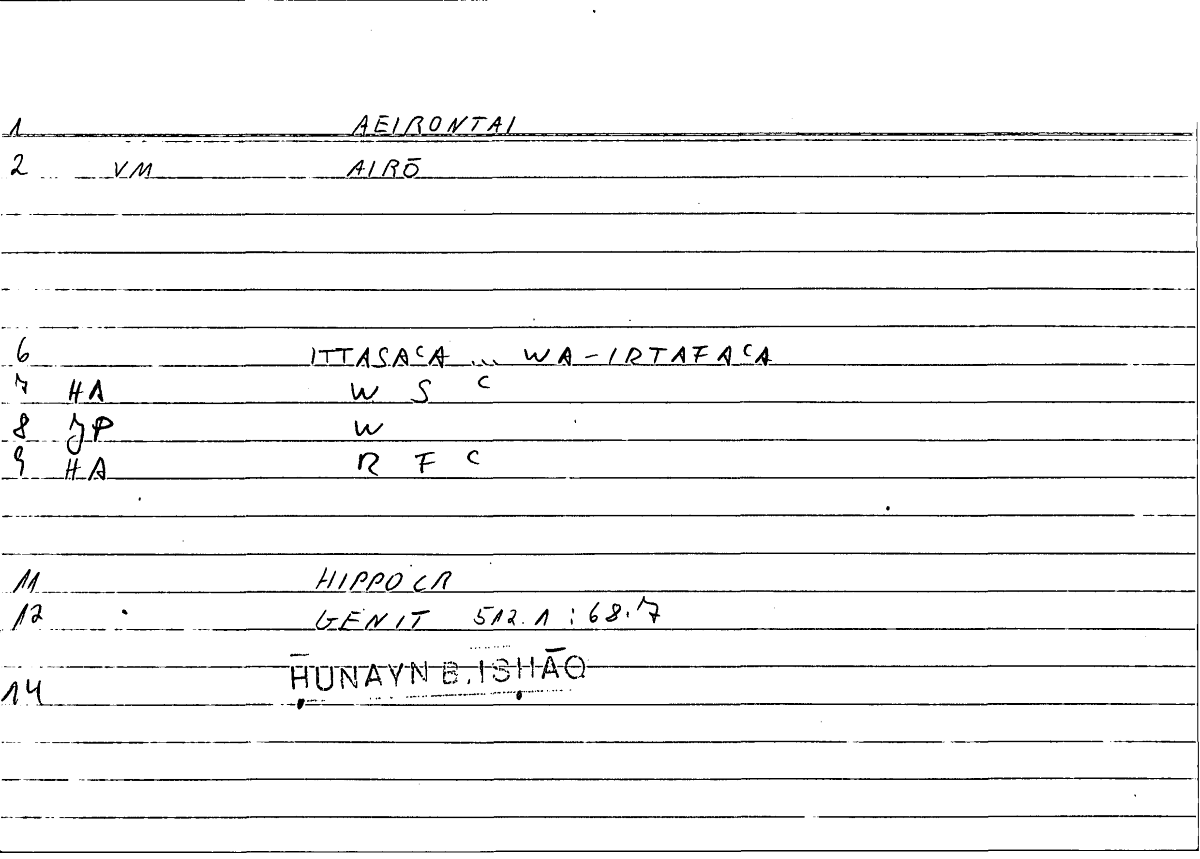 1 AEIRONTAI
2 VM AIRŌ
6 ITTASAᶜA ... WA-IRTAFAᶜA
7 HA W S ᶜ
8 JP W
9 HA R F ᶜ
11 HIPPOCR
12 GENIT 512.1 : 68.7
14 ḤUNAYN B. ISḤĀQ